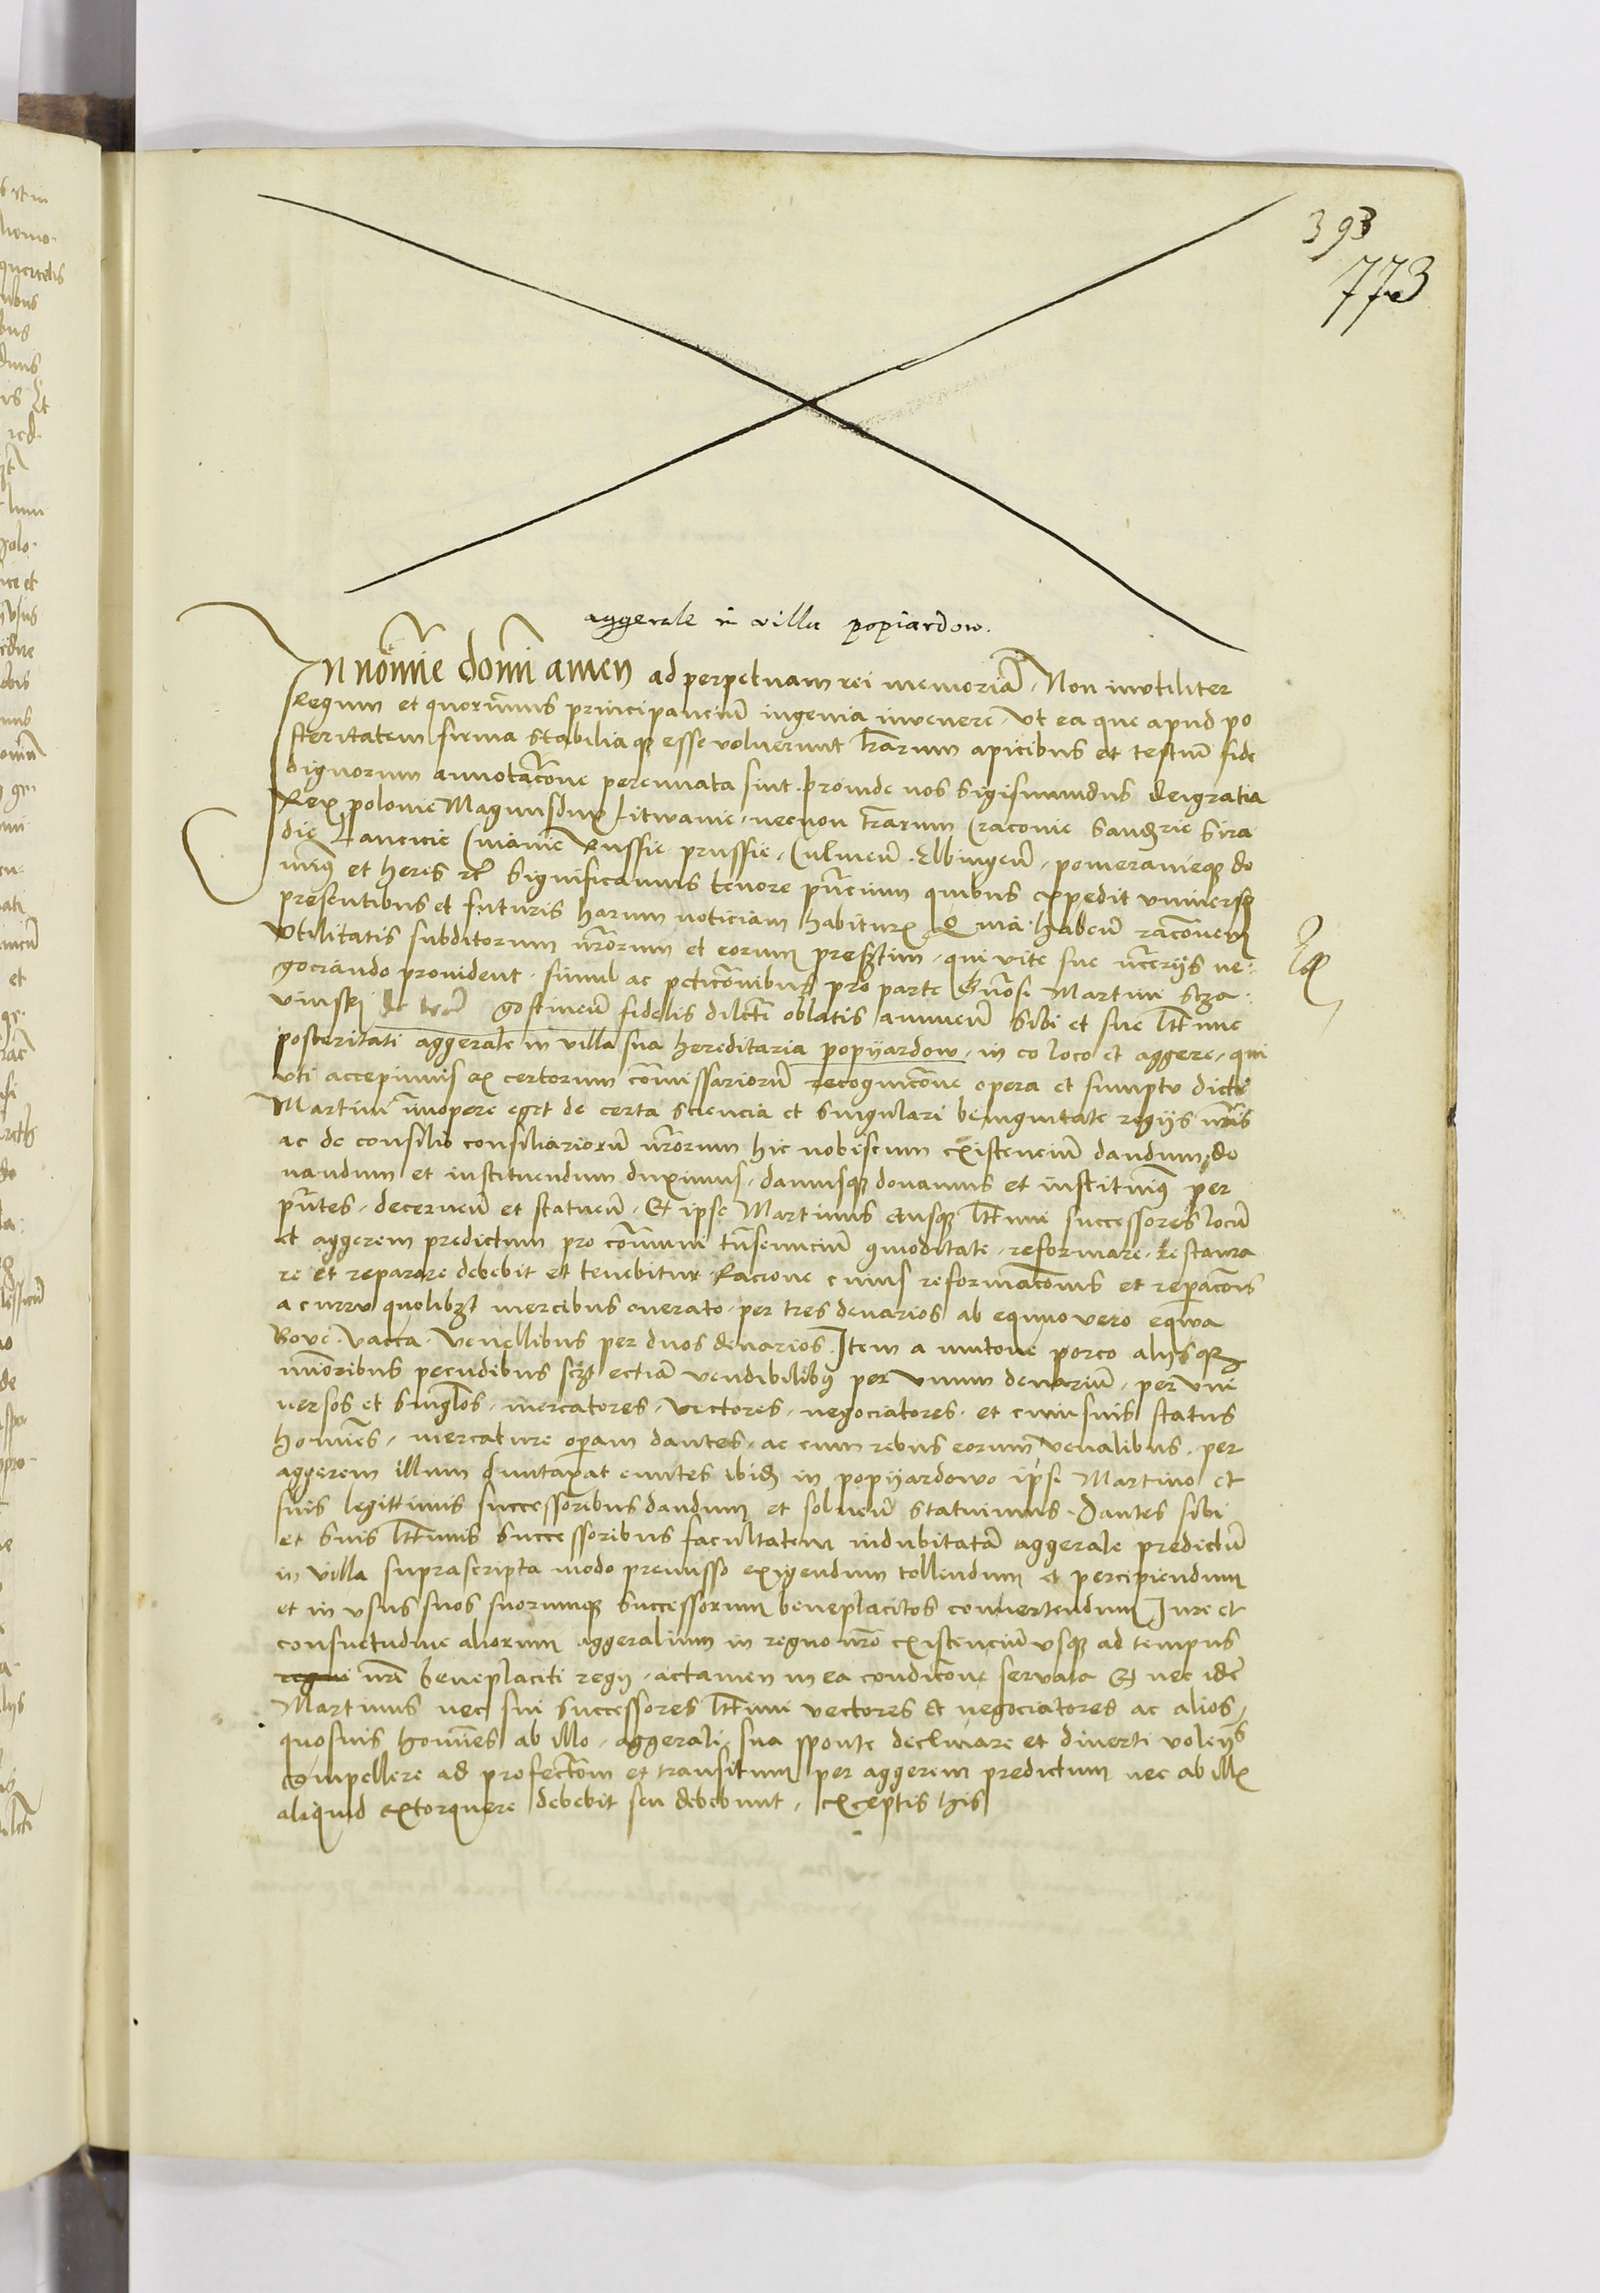 393
773
aggerale in villa popiardow.
In nomine domini amen ad perpetuam rei memoriam. Non inutiliter
Regum et quorumvis principancium ingenia invenere, ut ea que apud po
steritatem firma stabiliaque esse voluerunt lrarum apicibus et testium fide
dignorum annotacone perennata sint. Proinde nos Sigismundus dei gratia
Rex polonie Magnus dux Litwanie, necnon trarum Cracovie Sandomirie Sira
die Lancicie Cuiavie Russie prussie, Culmen. Elbingen. pomeranieque do
minus et heres etc Significamus tenore pncium quibus expedit universis
presentibus et futuris harum noticiam habituris Quia haben. raconem
Utilitatis subditorum nrorum et eorum presertim, qui vite sue ncariis ne:
gociando provident. simul ac peticonibus pro parte Gnosi Martini
gostinen. fidelis dilcti oblatis annuen. Sibi et sue lttime
posteritati aggerale in villa sua hereditaria popyardow, in eo loco et aggere, qui
uti accepimus ex certorum comissariorum recognicone opera et sumptu dicti
Martini de certa sciencia et singulari benignitate regiis nris
ac de consilio consiliariorum nrorum hic nobiscum existencium dandum, do
nandum et instituendum duximus, damusque donamus et instituimus per
pntes, decernen. et statuen. Et ipse Martinus eiusque lttimi successores locum
et aggerem predictum pro communi transeuncium commoditate, reformare, restaura
re et reparare debebit et tenebitur. Racione cuius reformaconis et reparaconis
a curru quolibet mercibus onerato, per tres denarios ab equuo vero equa
Bove. Vacca. Venellibus per duos denarios. Item a mutone porco aliisque
minoribus pecudibus scz eciam vendibilibus per unum denarium, per uni
versos et singlos, mercatores, vectores, negociatores, et cuiusvis status
homines, mercature operam dantes, ac cum rebus eorum venalibus, per
aggerem illum duntaxat euntes ibidem in popyardowo ipsi Martino et
suis legittimis successoribus dandum et solven. statuimus. Dantes sibi
et suis lttimis Successoribus facultatem indubitatam aggerale predictum
in villa suprascripta modo premisso exigendum tollendum et percipiendum
et in usus suos suorumque successorum beneplacitos convertendum Jure et
consuetudine aliorum aggeralium in regno nro existencium usque ad tempus
regni nri beneplaciti regii, actamen in ea condicone servata Et nec idem
Martinus nec sui successores lttimi vectores et negociatores ac alios,
quosvis homines ab illo, aggerali, sua sponte declinare et diverti volentes
compellere ad profectom et transitum per aggerem predictum nec ab illis
aliquid extorquere debebit seu debebunt, exceptis his